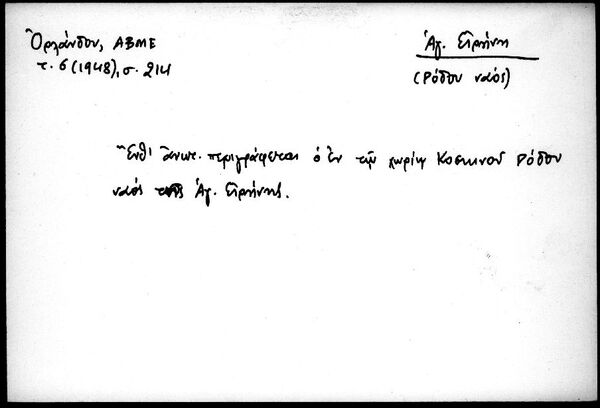 Ὀρλάνδου, ΑΒΜΕ
τ. 6 (1948), σ. 214
Ἁγ. Εἰρήνη
(Ρόδου ναός)
Ἔνθ' ἀνωτ. περιγράφεται ὁ ἐν τῷ χωρίῳ Κοσκινοῦ Ρόδου
ναός τῆς Ἁγ. Εἰρήνης.